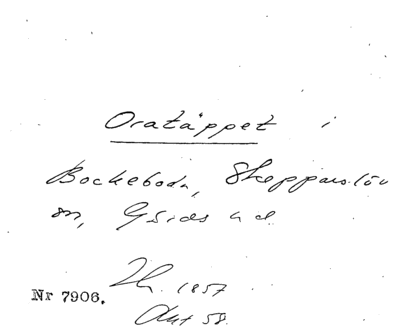 Oratäppet i
Bockeboda, Skepparslöv
sn, Gärds hd
Nr 7906. 1857
Akt 58.